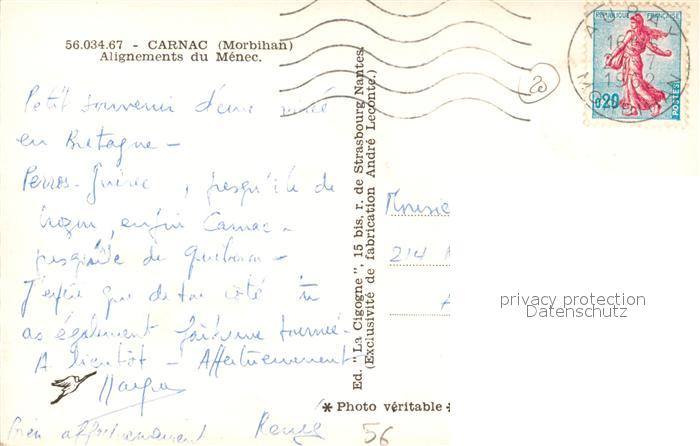 56.034.67 - CARNAC (Morbihan)
Alignements du Ménec.
Petit souvenir d'une virée
en Bretagne -
Perros-Guirec, presqu'île de
Crozon, enfin Carnac -
presqu'île de Quiberon -
J'espère que de ton côté tu
as également fait une tournée.
A bientôt - Affectueusement
Bien affectueusement
Ed. "La Cigogne", 15 bis, r. de Strasbourg, Nantes.
(Exclusivité de fabrication André Leconte.)
* Photo véritable *
56
20
REPUBLIQUE FRANÇAISE
0,20
POSTES
AURAY
16
1962
MORBIHAN
214
privacy protection
Datenschutz